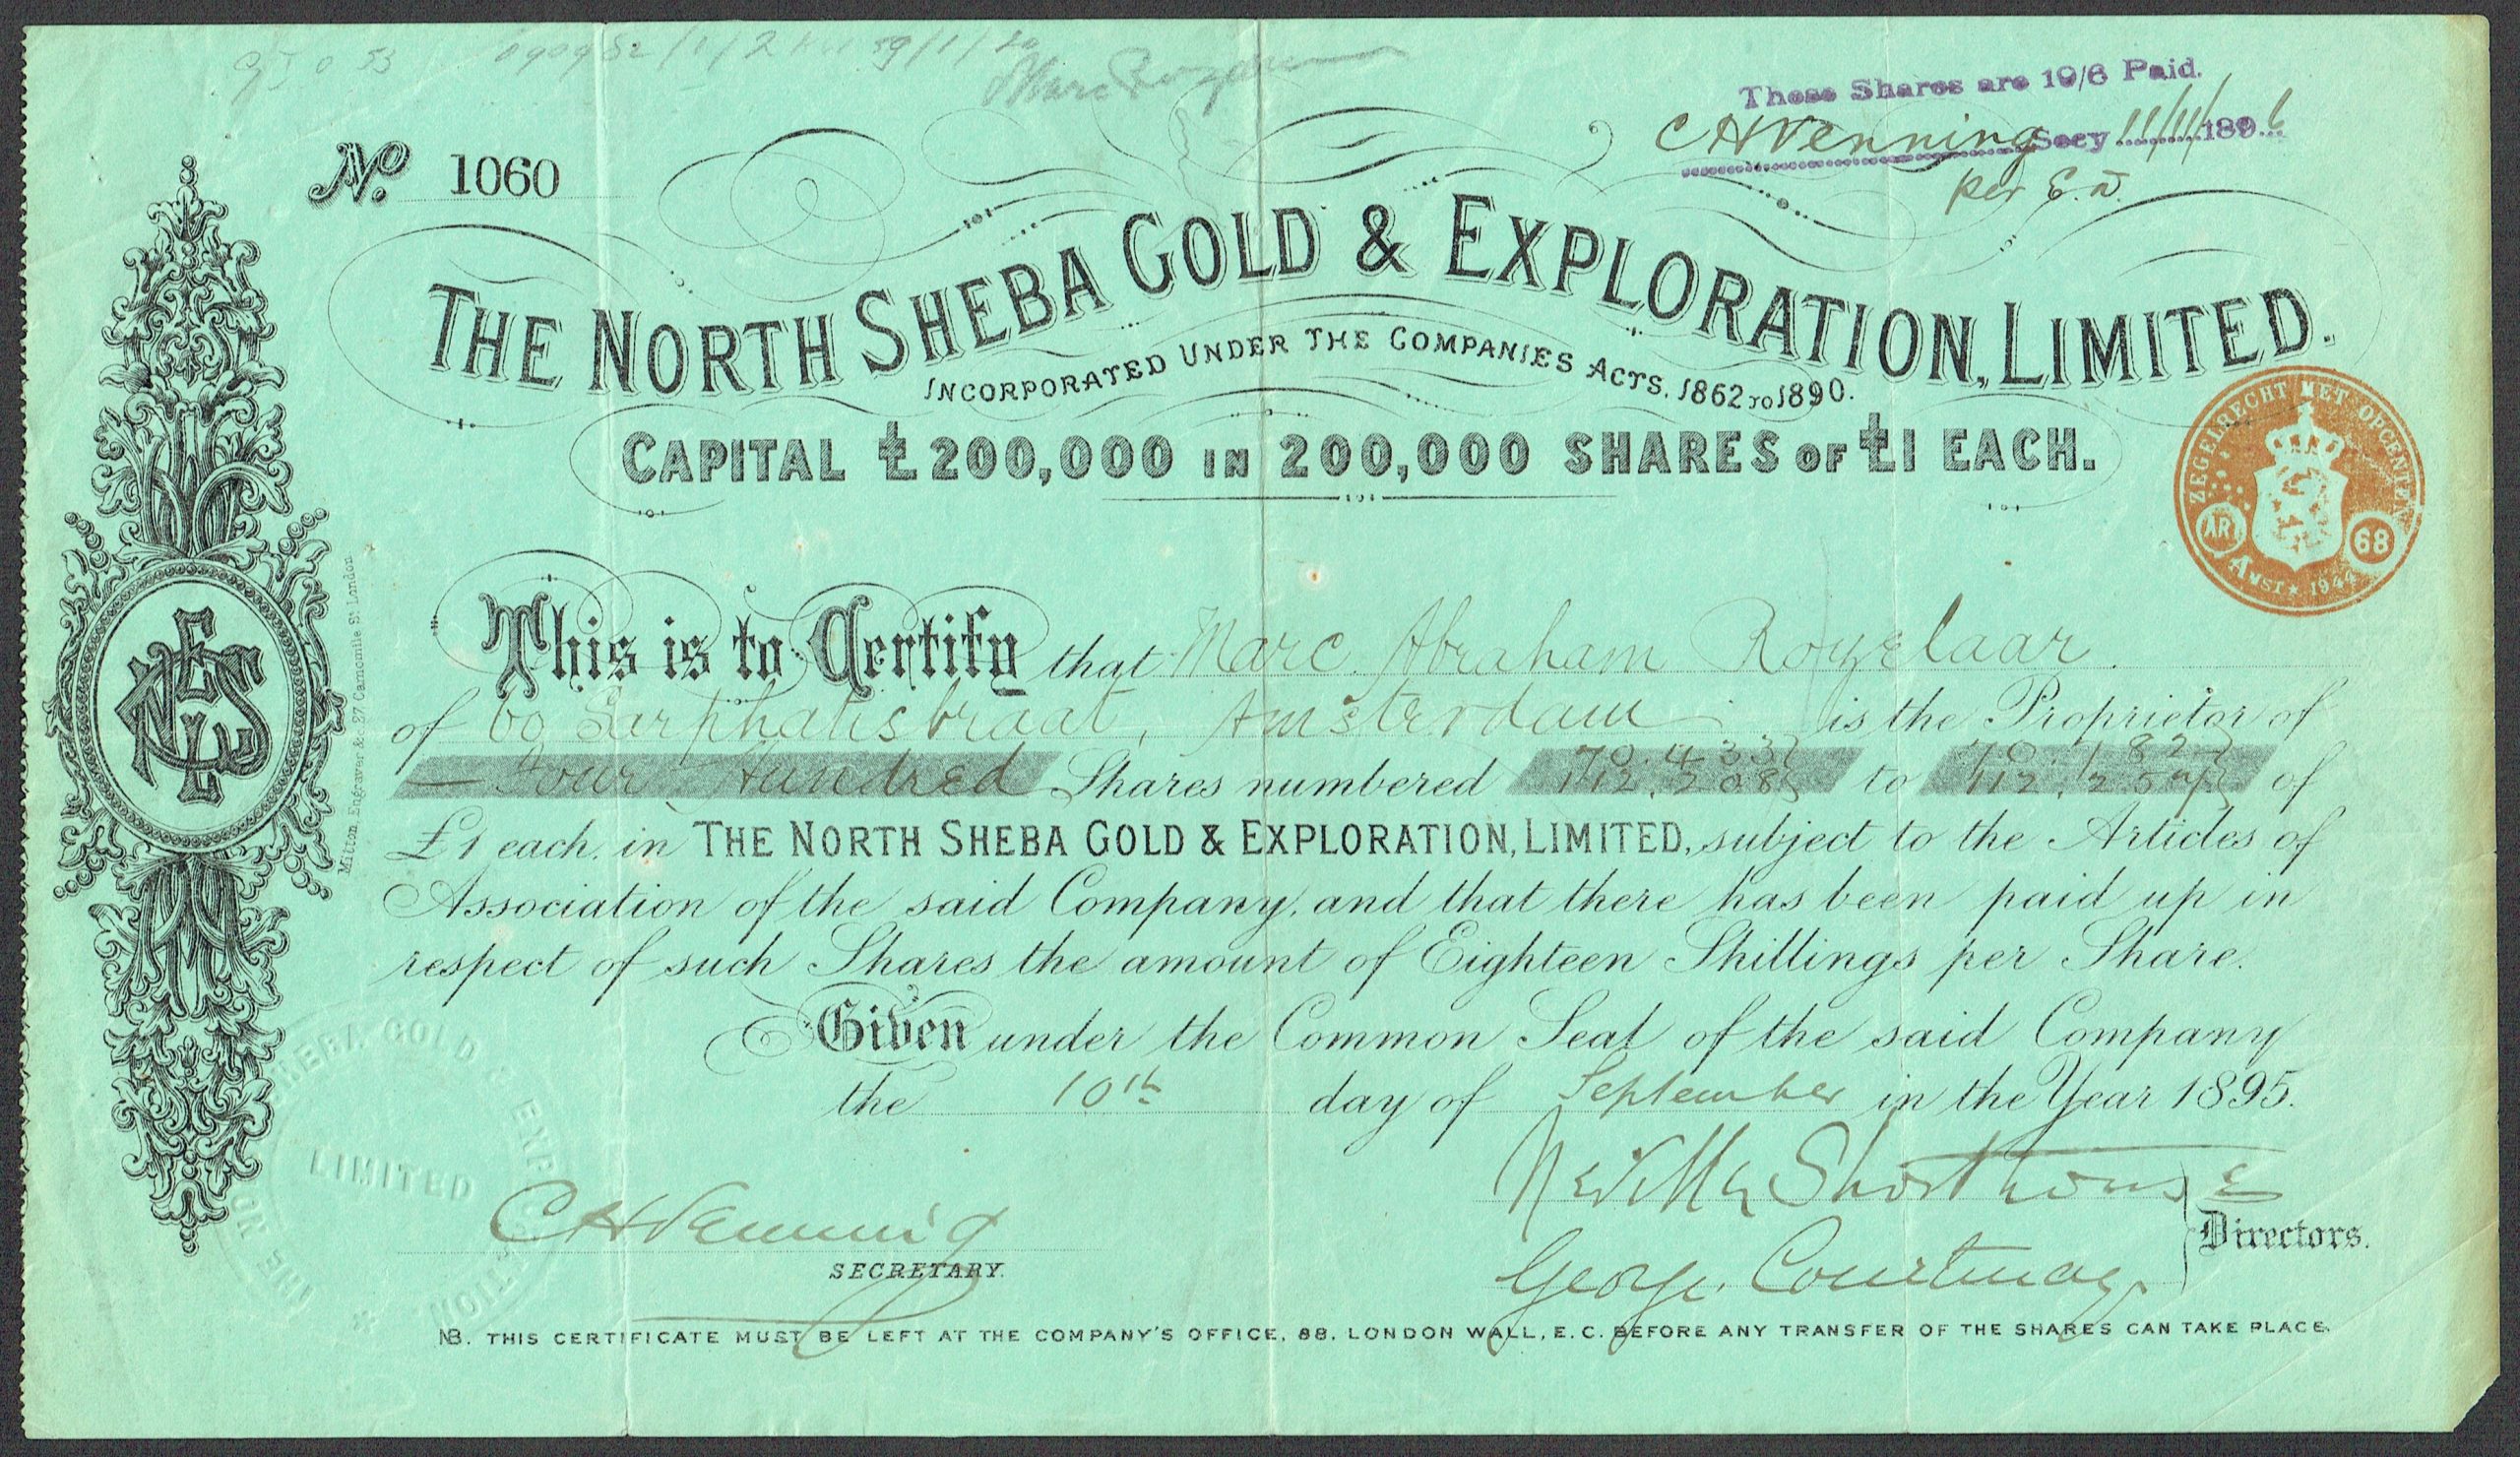 These Shares are 10/6 Paid.
C H Venning Secy 11/11/1896
per E. W.
No. 1060
THE NORTH SHEBA GOLD & EXPLORATION, LIMITED.
INCORPORATED UNDER THE COMPANIES ACTS, 1862 TO 1890.
CAPITAL £200,000 IN 200,000 SHARES OF £1 EACH.
ZEGELRECHT MET OPCENTEN
ART 68
AMST ★ 1944
NSGEL
Milton, Engraver &c. 27, Camomile St. London
This is to Certify that Marc Abraham Rozelaar
of 60 Sarphatistraat, Amsterdam is the Proprietor of
— Four Hundred Shares numbered 70.433 to 70.782 of
112.208 112.257
£1 each, in THE NORTH SHEBA GOLD & EXPLORATION, LIMITED, subject to the Articles of
Association of the said Company, and that there has been paid up in
respect of such Shares the amount of Eighteen Shillings per Share.
Given under the Common Seal of the said Company
the 10th day of September in the Year 1895.
THE NORTH SHEBA GOLD & EXPLORATION
LIMITED
C H Venning
SECRETARY.
Neville Shorthouse
George Courtenay
Directors.
NB. THIS CERTIFICATE MUST BE LEFT AT THE COMPANY'S OFFICE, 88, LONDON WALL, E.C. BEFORE ANY TRANSFER OF THE SHARES CAN TAKE PLACE.